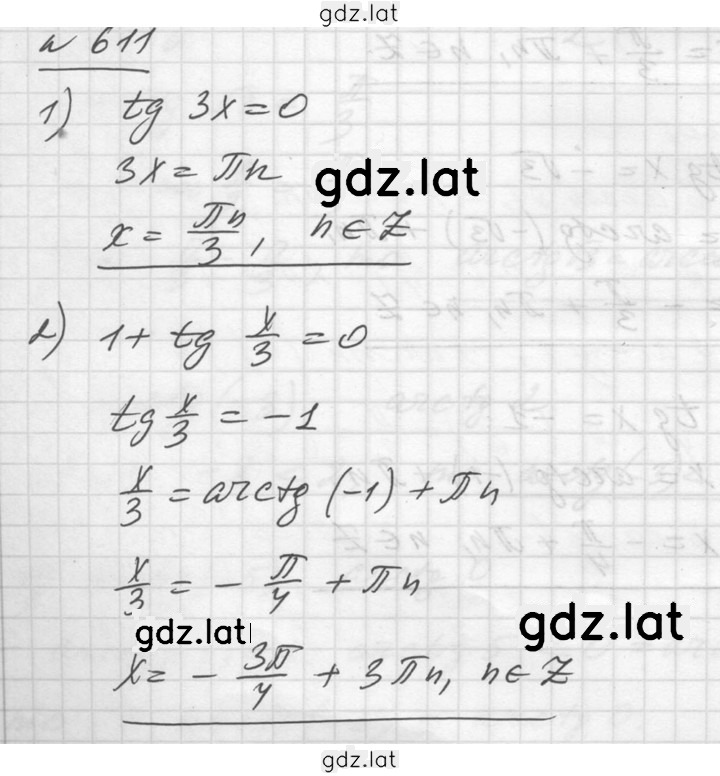 gdz.lat
№ 611
1) tg 3x = 0
3x = πn
gdz.lat
x = πn/3, n ∈ Z
2) 1 + tg x/3 = 0
tg x/3 = -1
x/3 = arctg (-1) + πn
x/3 = - π/4 + πn
gdz.lat
gdz.lat
x = - 3π/4 + 3πn, n ∈ Z
gdz.lat